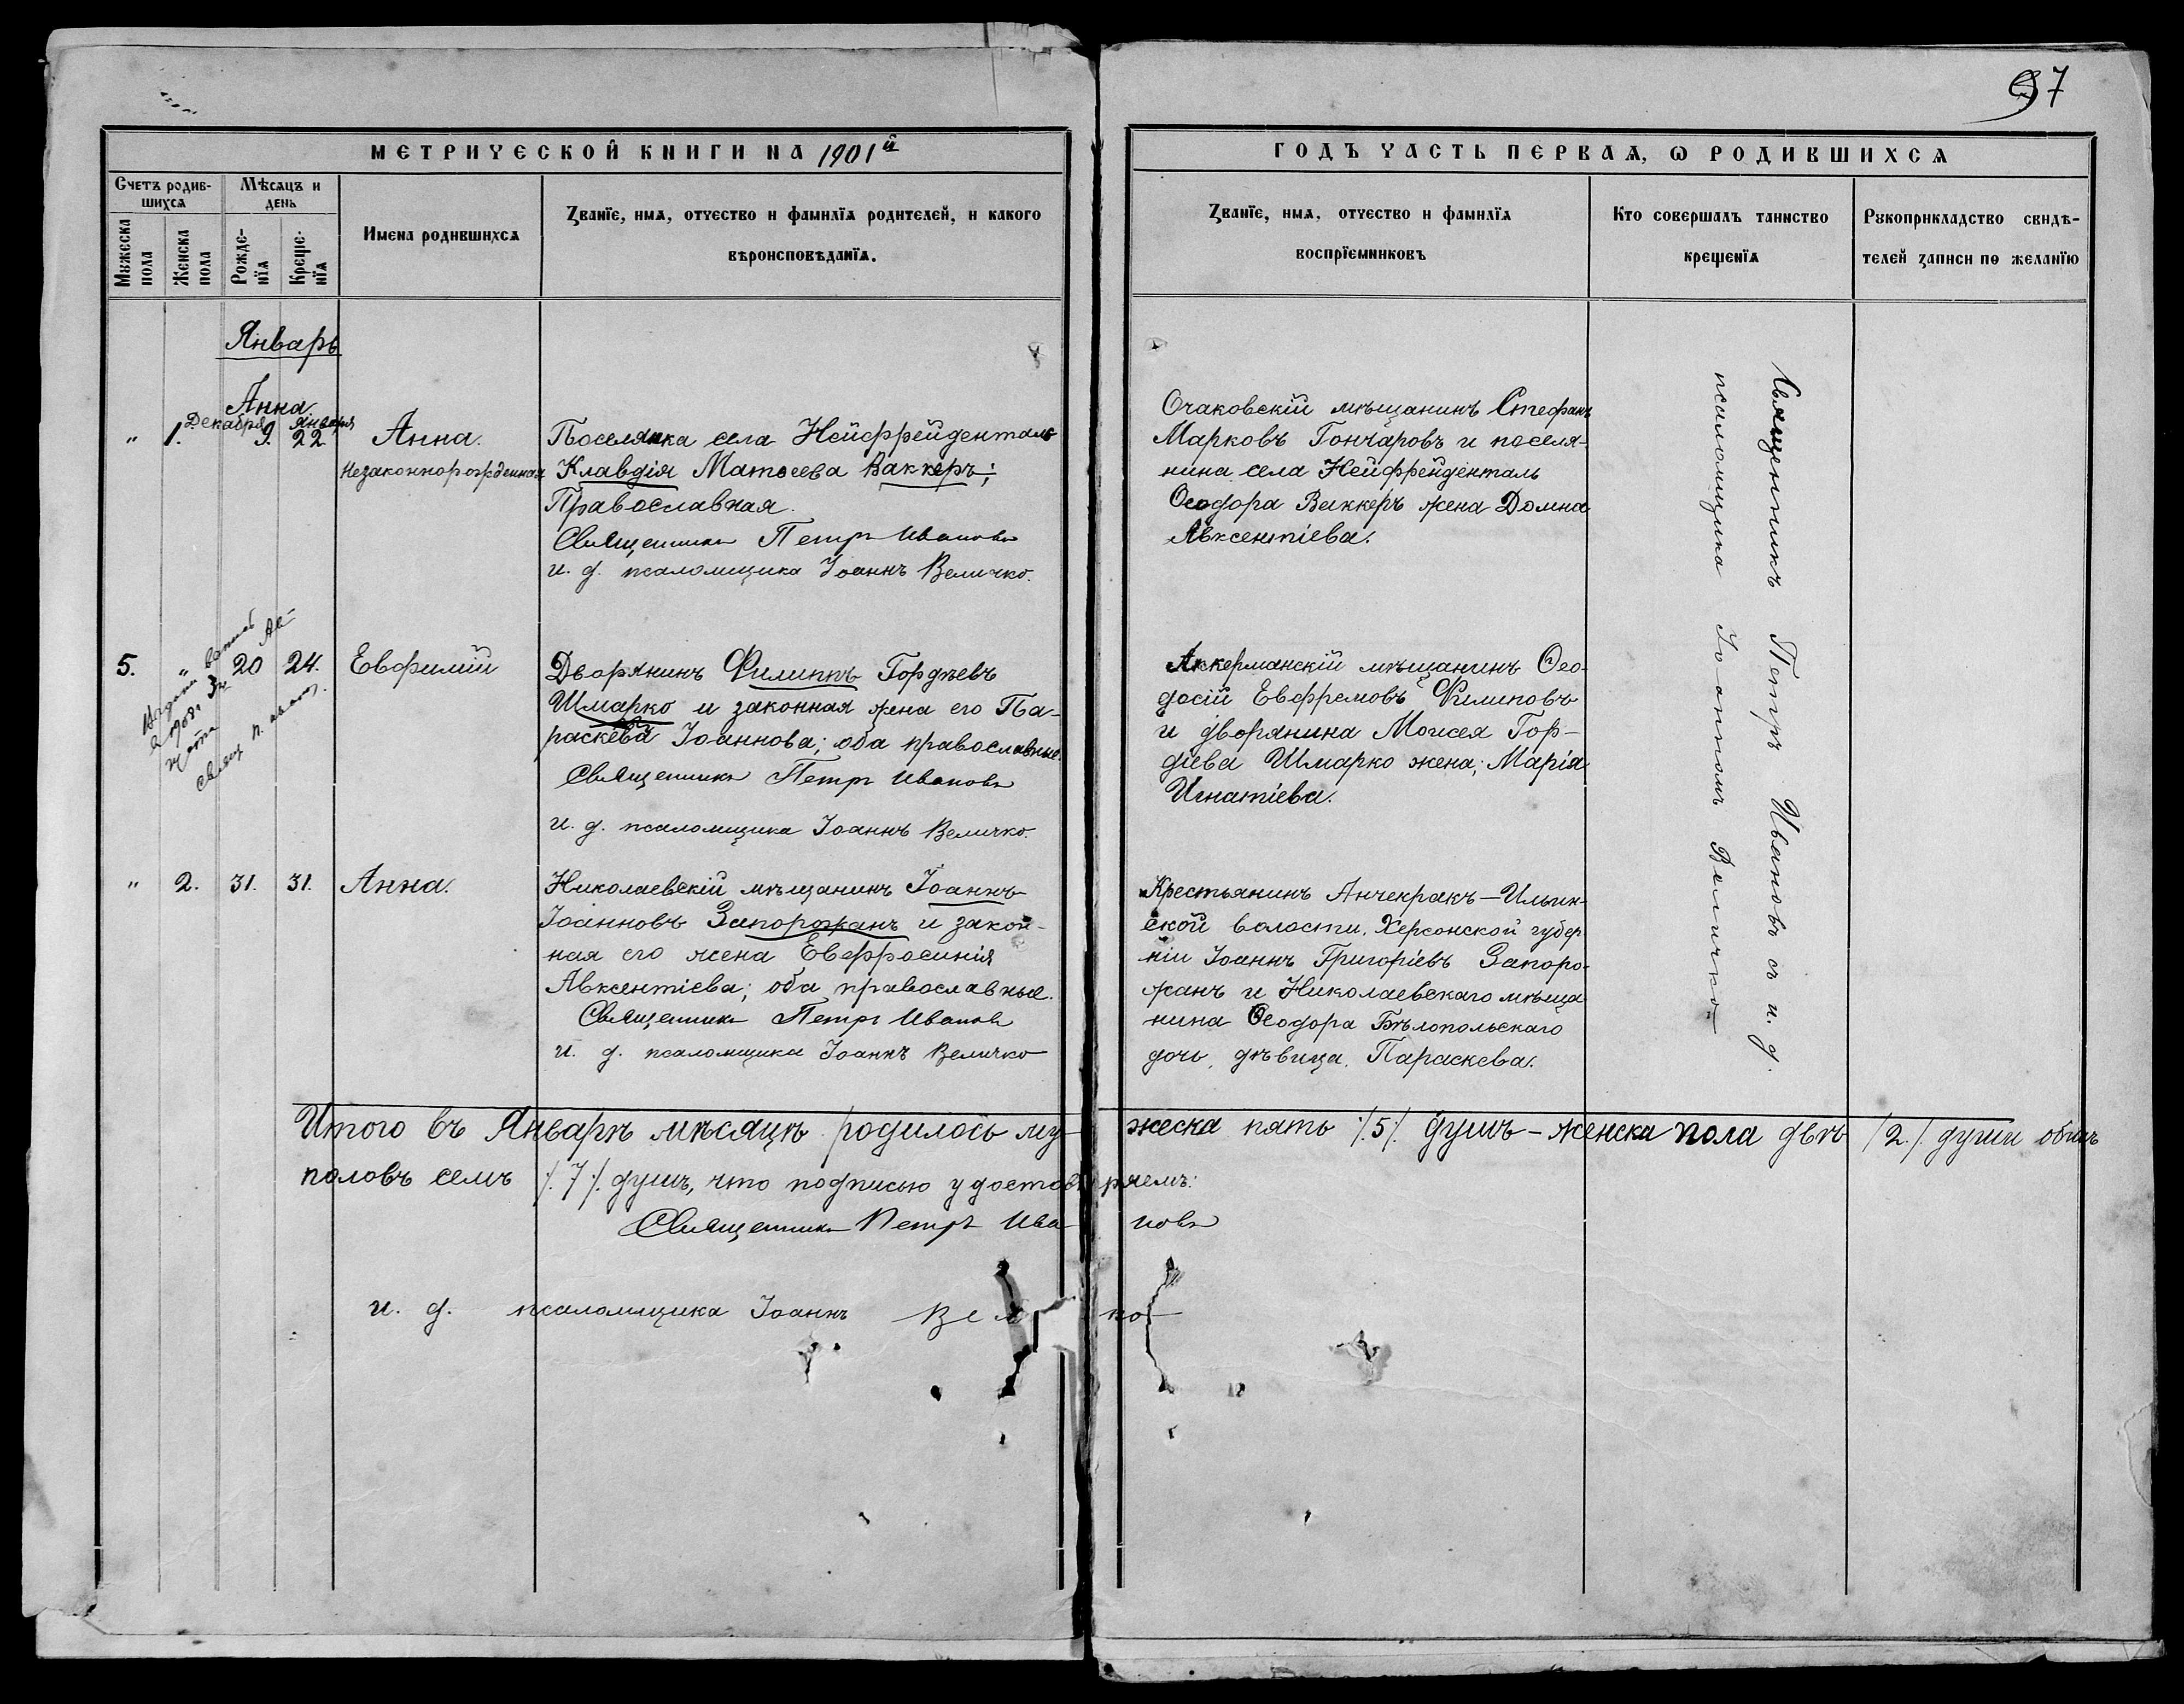 97
МЕТРИЧЕСКОЙ КНИГИ НА 1901й
ГОДЪ ЧАСТЬ ПЕРВАЯ, Ѡ РОДИВШИХСЯ
Счетъ родив-
шихся
Мѣсяцъ и
день
Мужеска
пола
Женска
пола
Рожде-
нїя
Креще-
нїя
Имена родившихся
Званїе, имя, отчество и фамилїя родителей, и какого
вѣроисповѣданїя.
Званїе, имя, отчество и фамилїя
воспрїемниковъ
Кто совершалъ таинство
крещенїя
Рукоприкладство свидѣ-
телей записи по желанїю
Январь
Анна.
Декабря Января
" 1. 9. 22 Анна.
Незаконнорожденная
Поселянка села Нейфрейденталь
Клавдія Матѳеева Ваккеръ;
Православная.
Священникъ Петръ Ивановъ
и. д. псаломщика Іоаннъ Величко.
Очаковскій мѣщанинъ Стефанъ
Марковъ Гончаровъ и поселя-
нина села Нейфрейденталь
Ѳеодора Ваккеръ жена Домна
Авксентіева.
5. " 20 24. Евфимій
1908
Свящ. П.
Дворянинъ Филиппъ Гордѣевъ
Шмарко и законная жена его Па-
раскева Іоаннова; оба православные.
Священникъ Петръ Ивановъ
и. д. псаломщика Іоаннъ Величко.
Аккерманскій мѣщанинъ Ѳео-
досій Евфремовъ Филиповъ
и дворянина Моисея Гор-
діева Шмарко жена; Марія
Игнатіева.
" 2. 31. 31. Анна.
Николаевскій мѣщанинъ Іоаннъ
Іоанновъ Запорожанъ и закон-
ная его жена Евфросинія
Авксентіева; оба православные.
Священникъ Петръ Ивановъ
и. д. псаломщика Іоаннъ Величко
Крестьянинъ Анчекракъ-Ильин-
ской волости, Херсонской губер-
ніи Іоаннъ Григоріевъ Запоро-
жанъ и Николаевскаго мѣща-
нина Ѳеодора Бѣлопольскаго
дочь, дѣвица, Параскева.
Священникъ Петръ Ивановъ съ и. д.
псаломщика Іоанномъ Величко
Итого въ Январѣ мѣсяцѣ родилось му-жеска пять /5/ душъ - женска пола двѣ /2/ души обоихъ
половъ семь /7/ душъ, что подписью удостовѣряемъ:
Священникъ Петръ Ивановъ
и. д. псаломщика Іоаннъ